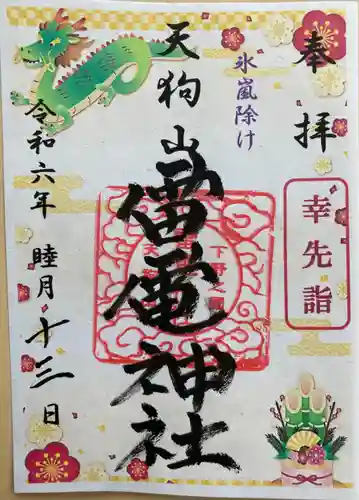 奉拝
幸先詣
氷嵐除け
天狗山
雷電神社
令和六年
睦月十三日